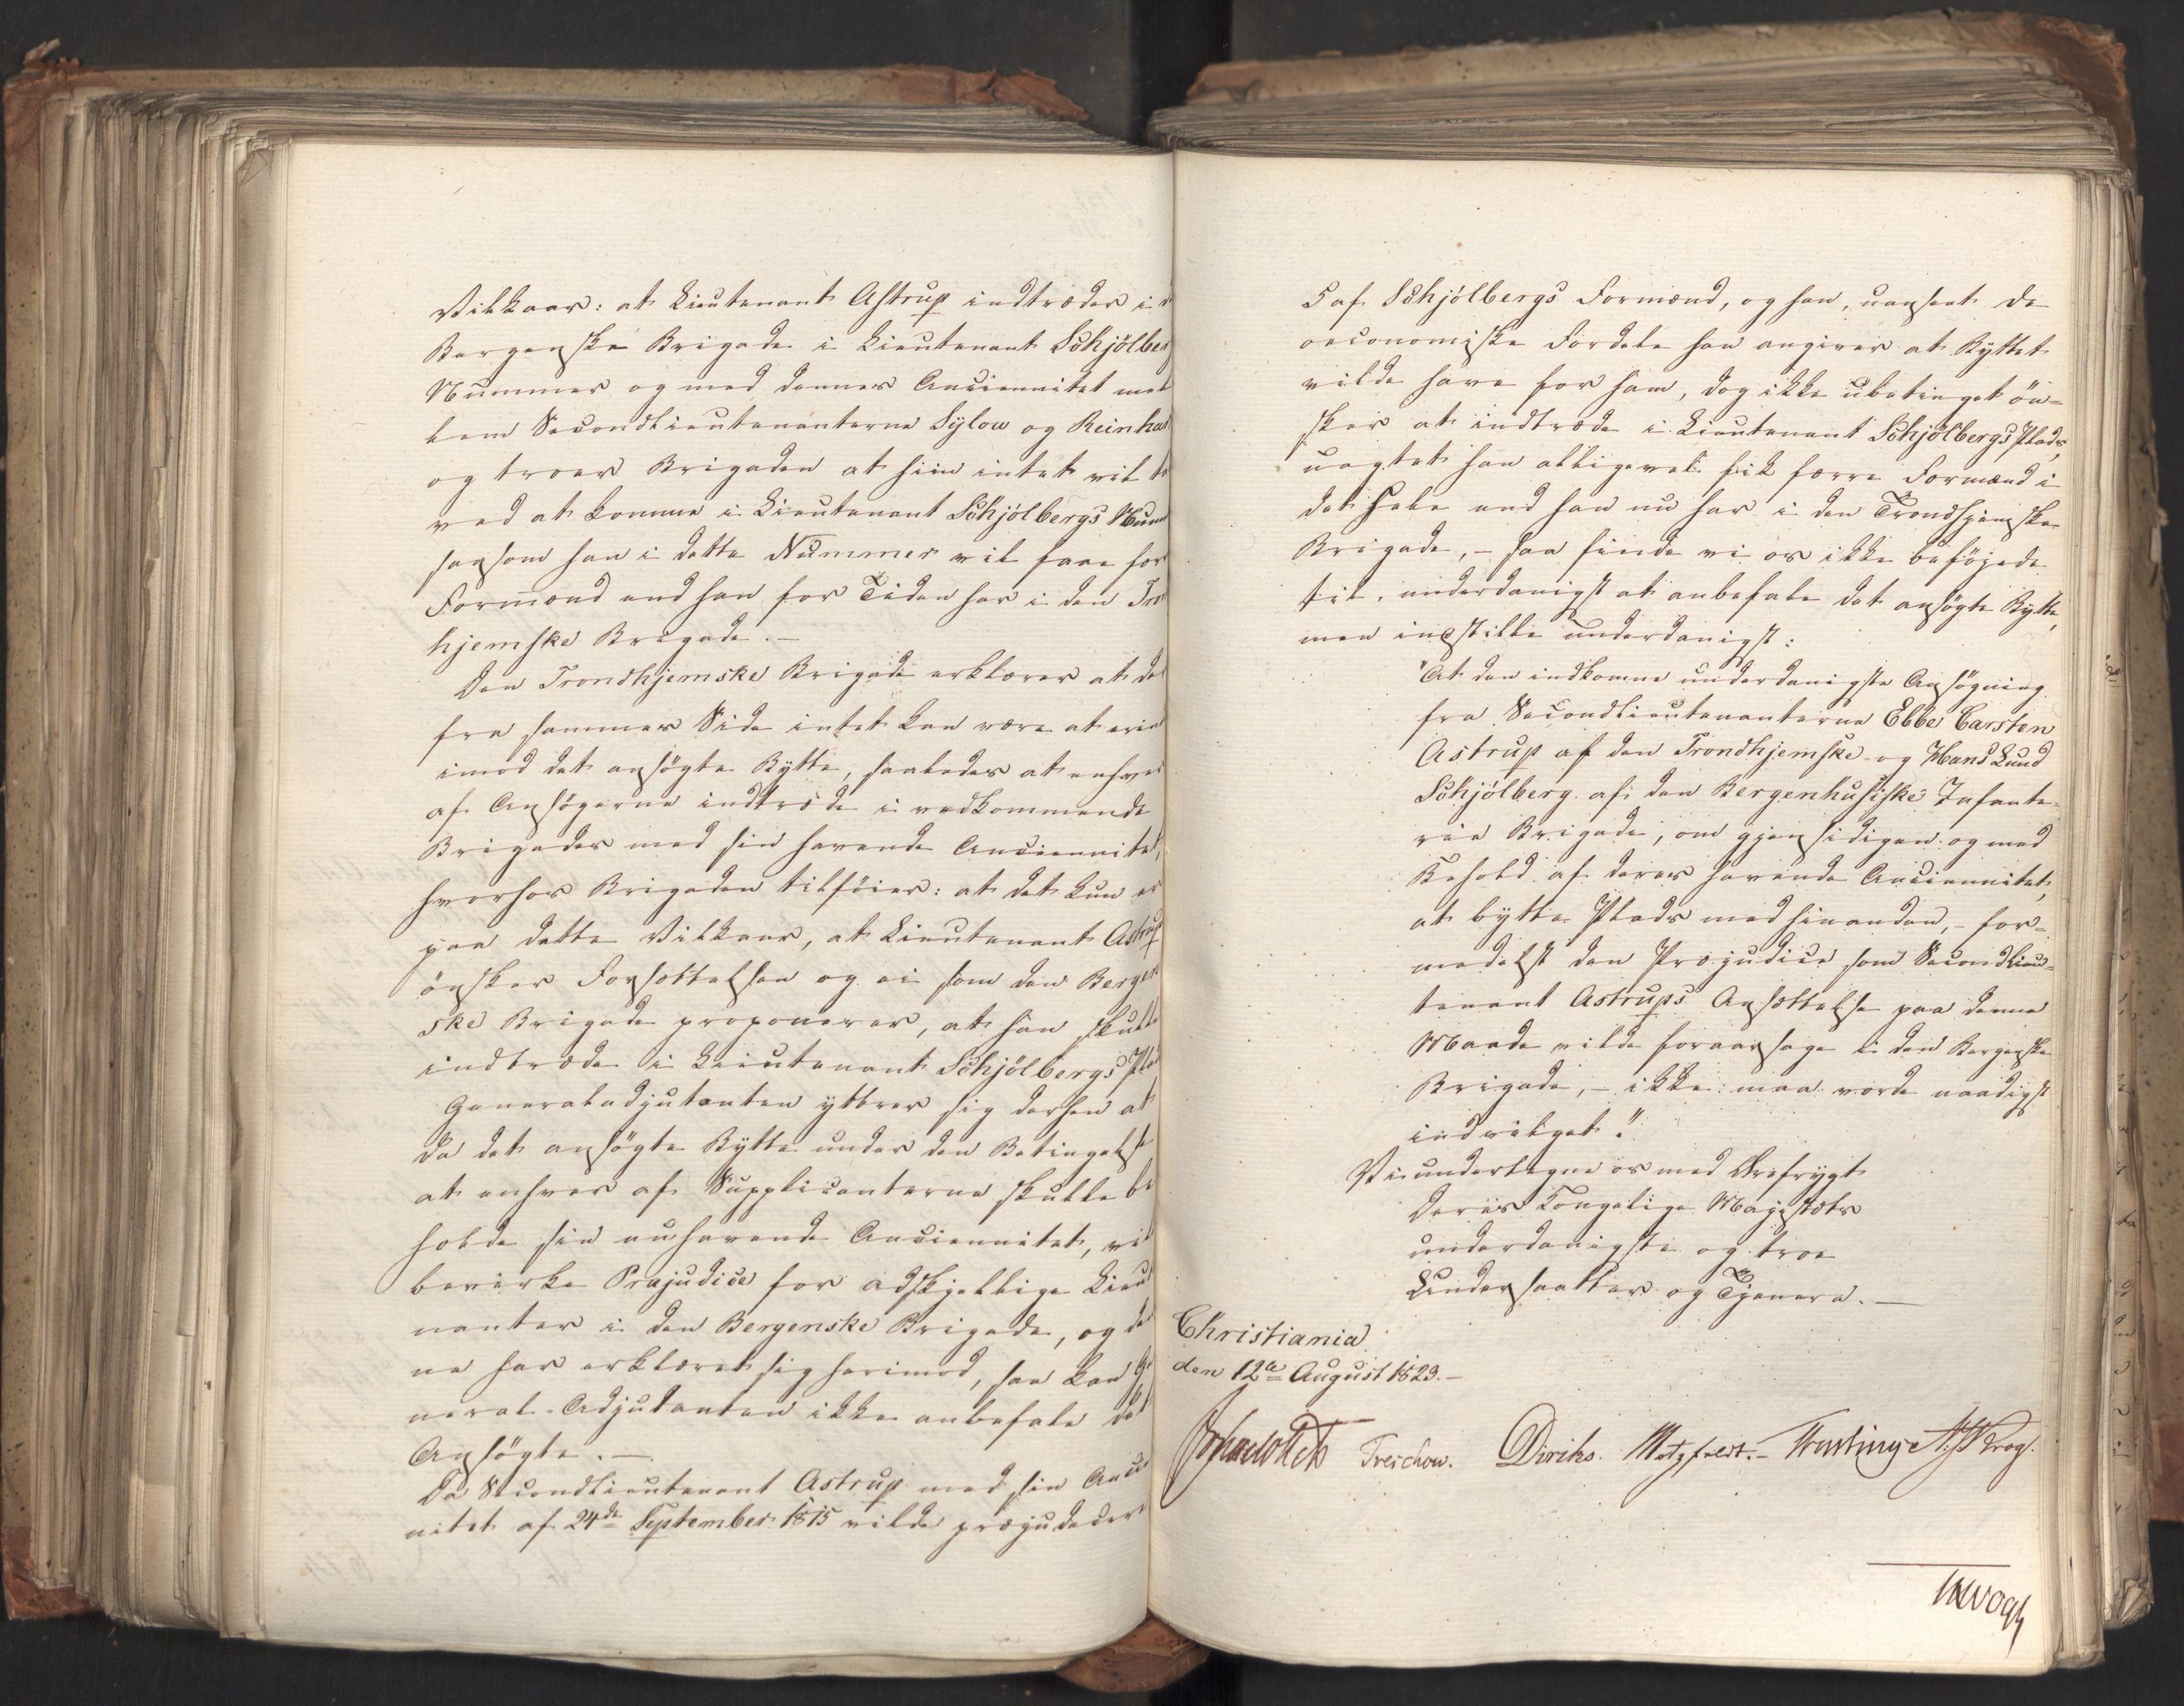 Vilkaar: at Lieutenant Astrup indtræder i d
Bergenske Brigade i Lieutenant Schjölber
Nummer og med dennes Anciennitet mel
lem Secondlieutenanterne Sylow og Reinhar
og troer Brigaden at hiin intet vil ta
ved at komme i Lieutenant Schjölbergs Num
saasom han i dette Nummer vil faae fær
Formænd end han for Tiden har i den Tro
hjemske Brigade.-
Den Trondhjemske Brigade erklærer at de
fra sammes Side intet kan være at erin
imod det ansögte Bytte, saaledes at enhver
af Ansögerne indtræde i vedkommende
Brigader med sin havende Anciennitet,
hvorhos Brigaden tilföier: at det kun er
paa dette Vilkaar, at Lieutenant Astrup
önsker Forsættelsen og ei som den Bergen
ske Brigade proponerer, at han skulde
indtræde i Lieutenant Schjölbergs Pla
Generaladjutanten yttrer sig derhen at
da det ansögte Bytte under den Betingelse
at enhver af Supplicanterne skulle be
holde sin nuhavende Anciennitet, vil
bevirke Præjudice for adskjellige Lieut
nanter i den Bergenske Brigade, og de
ne har erklæret sig herimod, saa kan Ge
neral-Adjutanten ikke anbefale det
Ansögte.-
Da Secondlieutenant Astrup med sin Ancie
nitet af 24de September 1815 vilde præjudicere
5 af Schjölbergs Formænd, og han, uanseet de
oeconomiske Fordele han angiver at Byttet
vilde have for ham, dog ikke ubetinget ön-
sker at indtræde i Lieutenant Schjölbergs Plads,
uagtet han alligevel fik færre Formænd i
det Hele end han nu har i den Trondhjemske
Brigade, - saa finde vi os ikke beföjede
til underdanigst at anbefale det ansögte Bytte,
men indstille underdanigst:
"At den indkomne underdanigste Ansögning
fra Secondlieutenanterne Ebbe Carsten
Astrup af den Trondhjemske- og Hans Lund
Schjölberg af den Bergenhusiske Infante-
rie Brigade, om gjensidigen og med
Behold af deres havende Anciennitet,
at bytte Plads med hinanden, - for-
medelst den Præjudice som Secondlieu-
tenant Astrups Ansættelse paa denne
Maade vilde foraarsage i den Bergenske
Brigade, - ikke maa vorde naadigst
indvilget."
Vi undertegne os med Ærefrygt
Deres Kongelige Majestæts
underdanigste og troe
Undersaatter og Tjenere.-
Christiania
den 12te August 1823.-
Treschow. Diriks. Motzfeldt.- Krog.